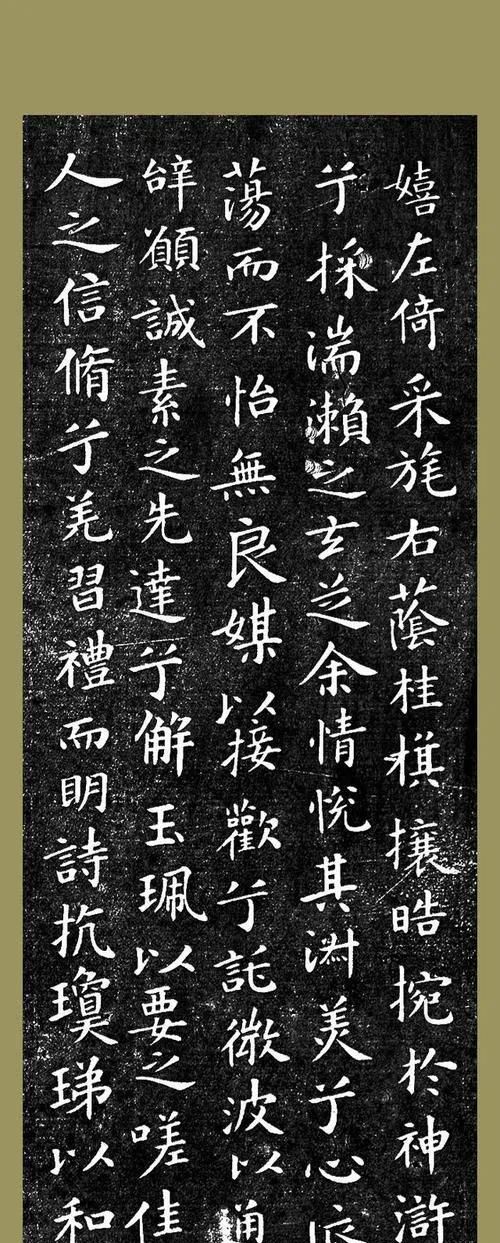 嬉左倚采旄右蔭桂棋攘晧捥於神滸
兮採湍瀨之玄芝余情悅其淑美兮心
蕩而不怡無良媒以接歡兮託微波以
辭願誠素之先達兮解玉珮以要之嗟佳
人之信脩兮羌習禮而明詩抗瓊珶以和